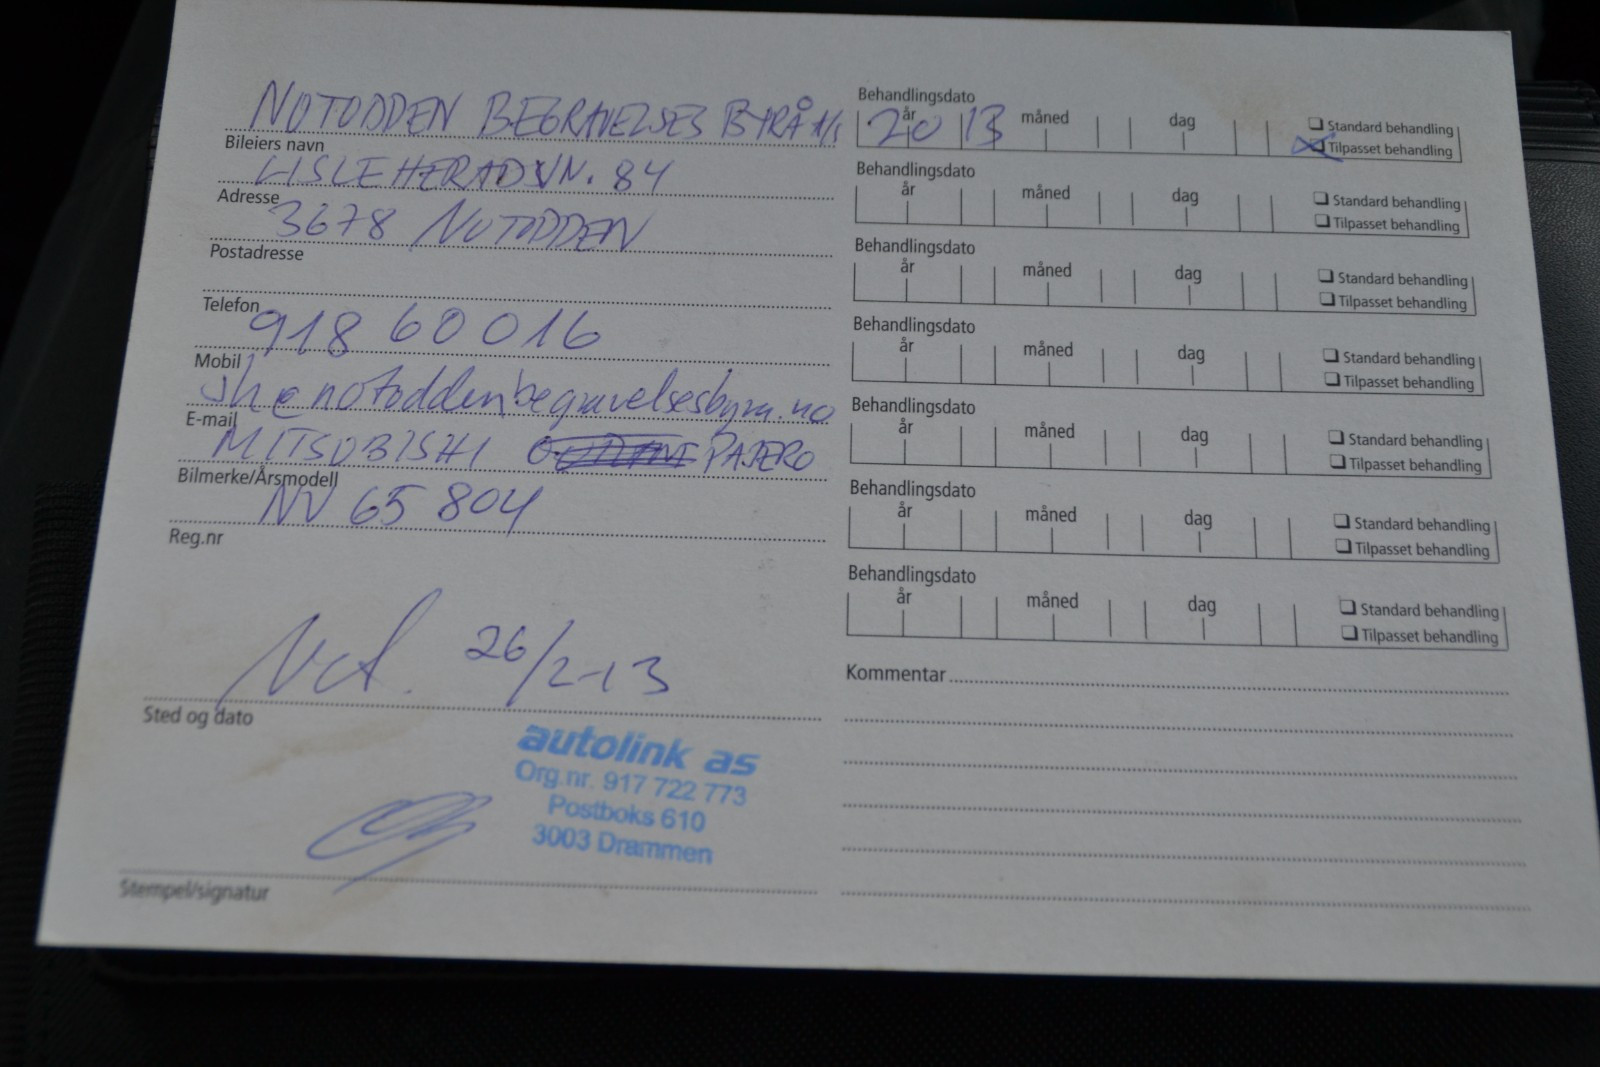 NOTODDEN BEGRAVELSES BYRÅ A/S
Bileiers navn
LISLEHERADSVN. 84
Adresse
3678 NOTODDEN
Postadresse
Telefon
918 60 016
Mobil
jh@notoddenbegravelsesbyra.no
E-mail
MITSUBISHI PAJERO
Bilmerke/Årsmodell
NV 65 804
Reg.nr
26/2-13
Sted og dato
autolink as
Org.nr. 917 722 773
Postboks 610
3003 Drammen
Stempel/signatur
Behandlingsdato
år 2013 måned dag
Standard behandling
Tilpasset behandling
Behandlingsdato
år måned dag
Standard behandling
Tilpasset behandling
Behandlingsdato
år måned dag
Standard behandling
Tilpasset behandling
Behandlingsdato
år måned dag
Standard behandling
Tilpasset behandling
Behandlingsdato
år måned dag
Standard behandling
Tilpasset behandling
Behandlingsdato
år måned dag
Standard behandling
Tilpasset behandling
Behandlingsdato
år måned dag
Standard behandling
Tilpasset behandling
Kommentar